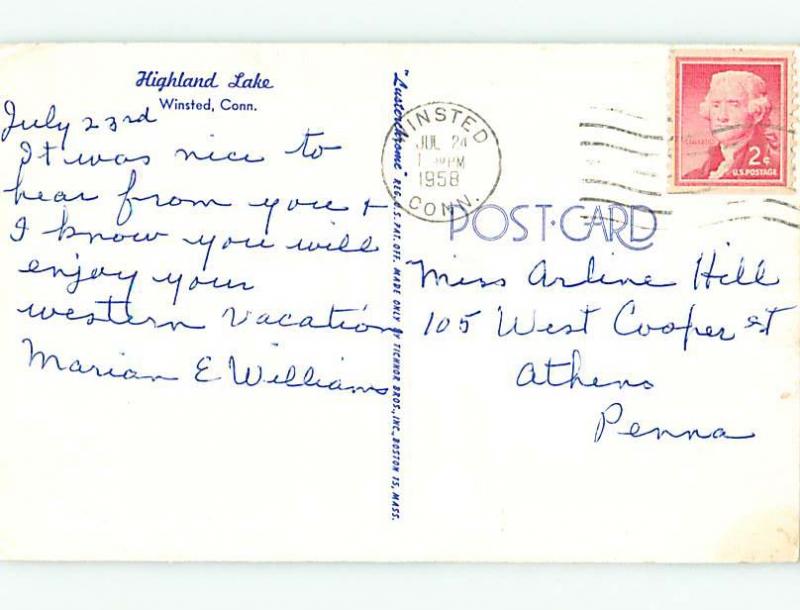 Highland Lake
Winsted, Conn.
July 23rd
It was nice to
hear from you +
I know you will
enjoy your
western vacation
Marian E Williams
"Lusterchrome" REG. U.S. PAT. OFF. MADE ONLY BY TICHNOR BROS., INC., BOSTON 15, MASS.
WINSTED
JUL 24
PM
1958
CONN.
2¢
U.S. POSTAGE
POST-CARD
Miss Arline Hill
105 West Cooper St
Athens
Penna